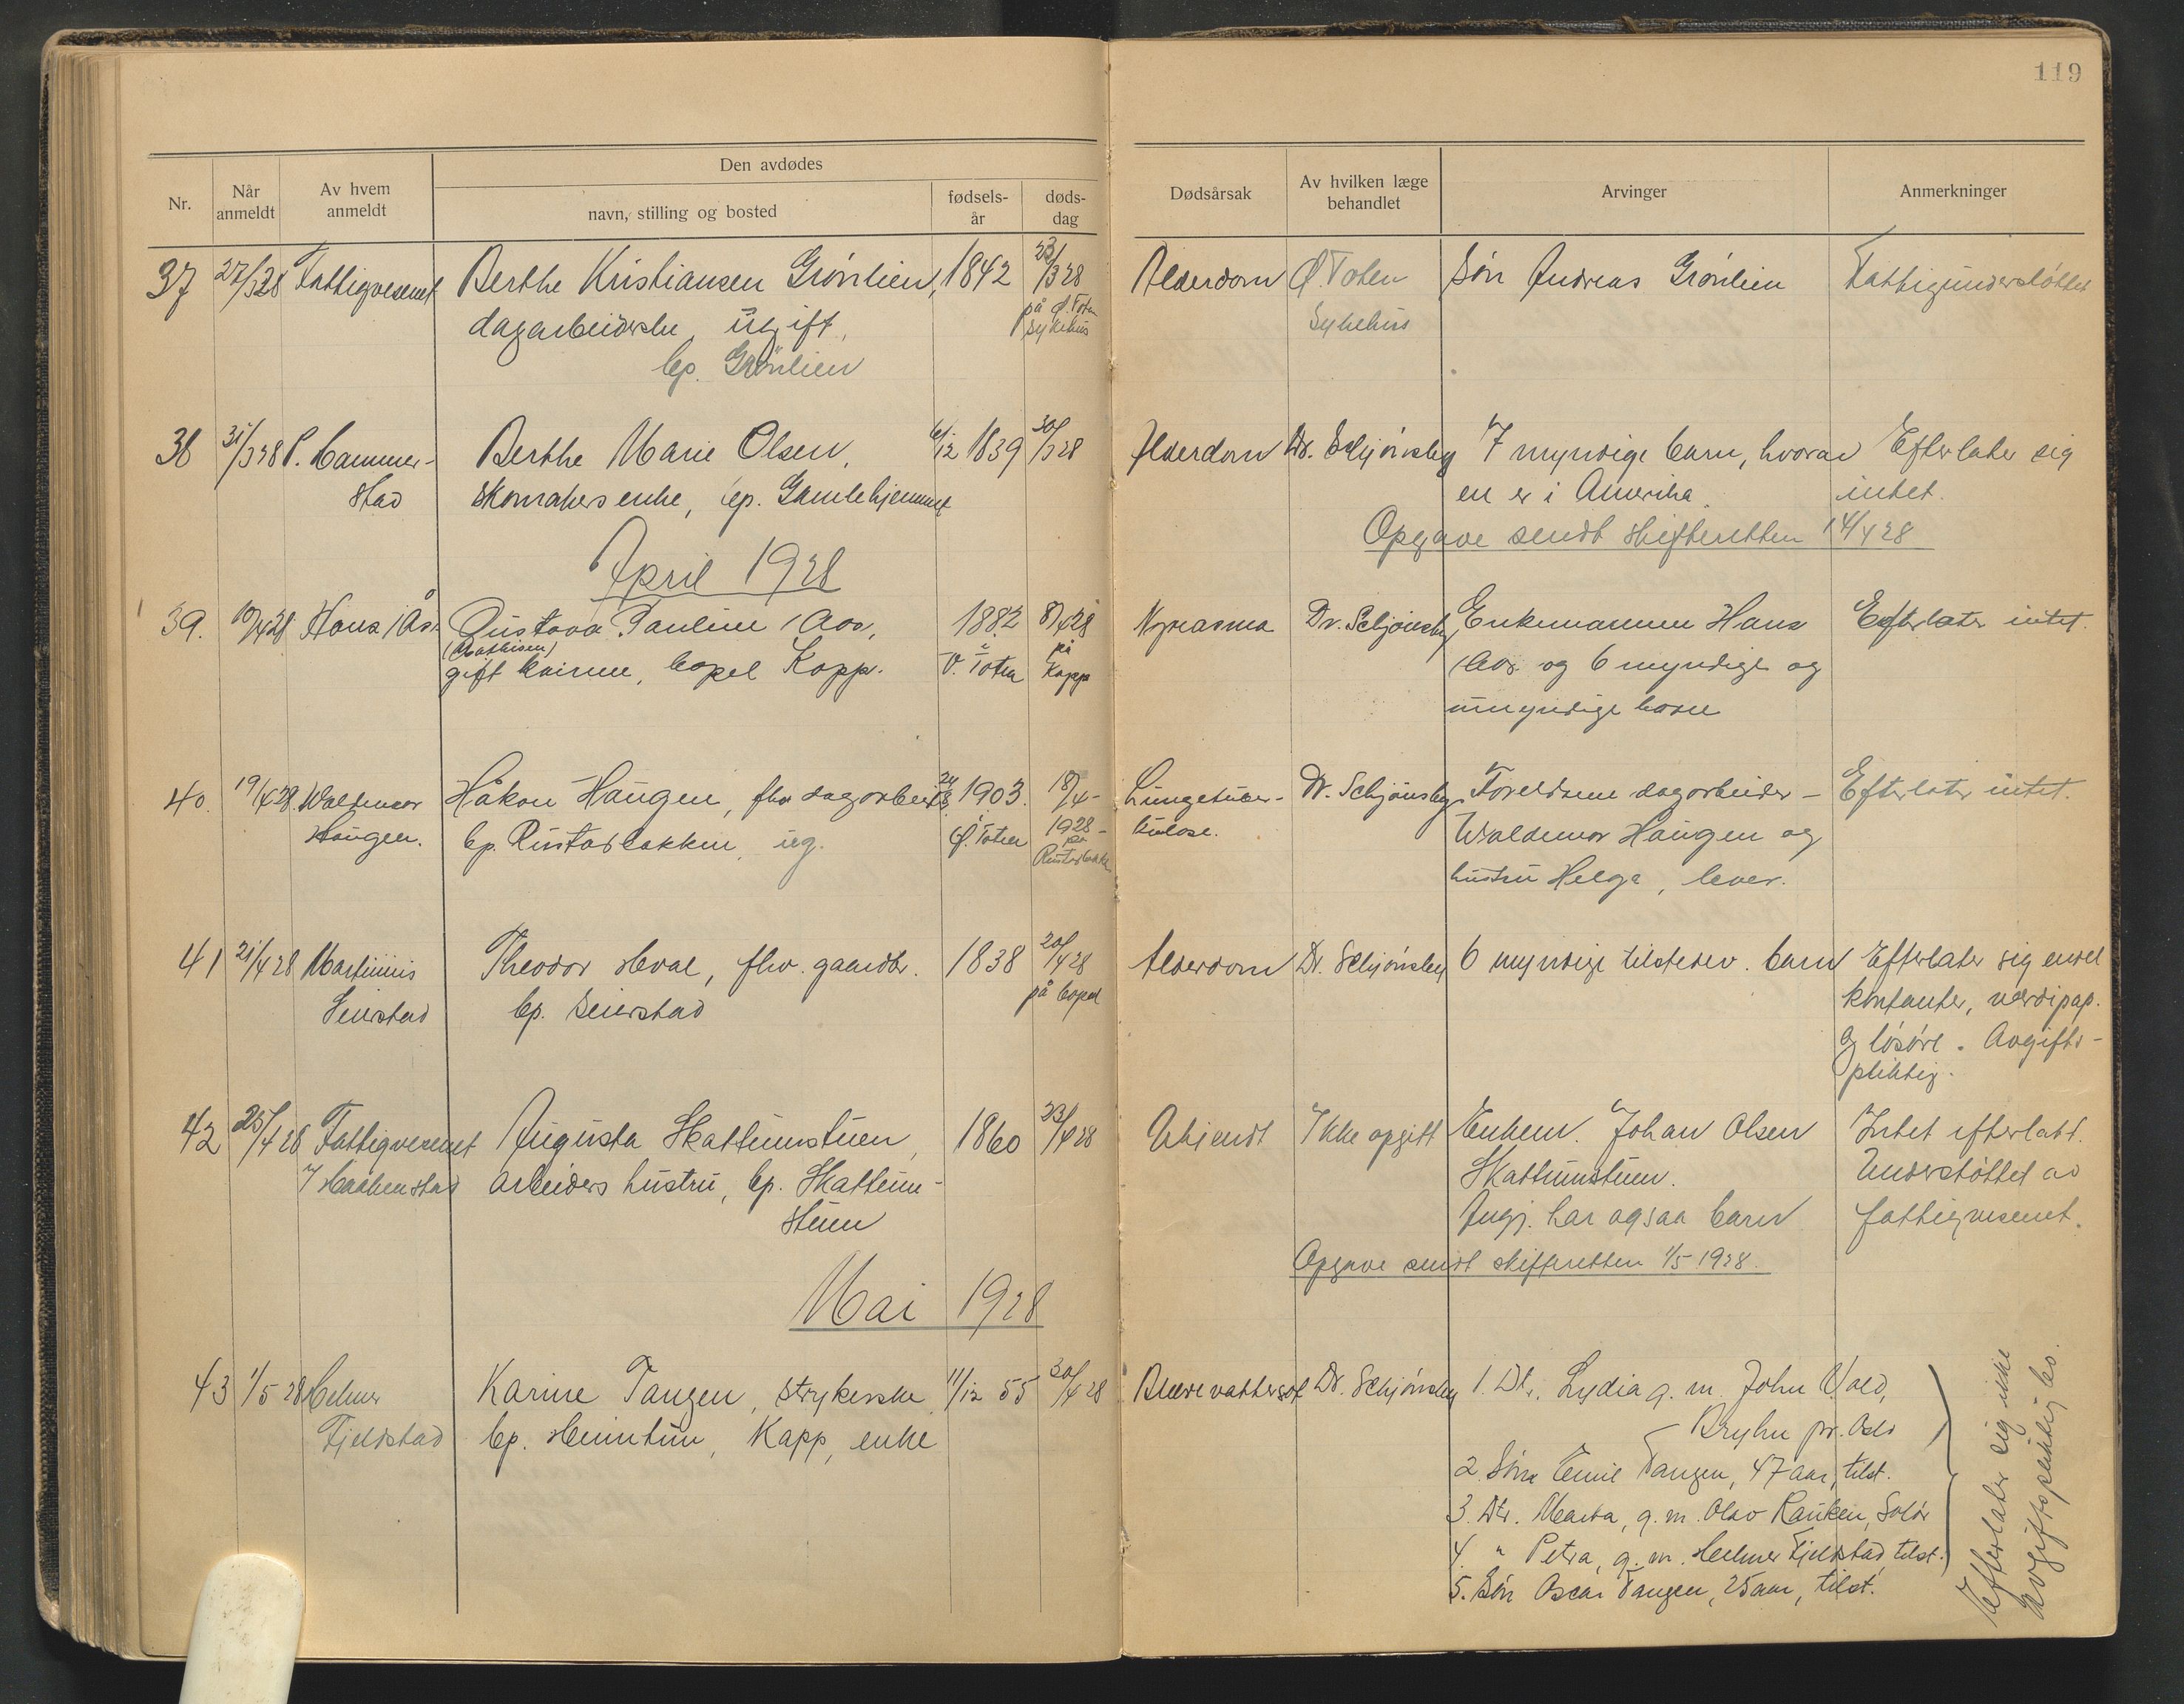 119
Den avdødes
Nr.
Når anmeldt
Av hvem anmeldt
navn, stilling og bosted
fødsels-år
døds-dag
Dødsårsak
Av hvilken læge behandlet
Arvinger
Anmerkninger
37 27/3 28 Fattigvesenet Berthe Kristiansen Grönlien, 1842 23/3 28 Alderdom Ø. Toten Sön Andreas Grönlien Fattigunderstöttet
dagarbeiderske, ugift, på Ø. Toten sykehus Sykehus
bp. Grönlien
38 31/3 28 P. Hammer- Berthe Marie Olsen, 6/12 1839 30/3 28 Alderdom Dr. Schjönsby 7 myndige barn, hvorav Efterlater sig
stad skomakers enke, bp. Gamlehjemmet en er i Amerika. intet.
Opgave sendt skifteretten 14/4 28
April 1928
39. 10/4 28 Hans Aas Gustava Pauline Aas, 1882 8/4 28 Dr. Schjönsby Enkemannen Hans Efterlater intet.
gift kvinne, bopel Kapp. i V. Toten på Kapp Aas og 6 myndige og
umyndige barn
40. 19/4 28 Waldemar Håkon Haugen, fhv dagarbeid. 1903. 18/4- Lungetuber- Dr. Schjönsby Foreldrene dagarbeider- Efterlater intet.
Haugen. bp. Rustadbakken, ug. i Ø. Toten 1928 - på Rustadbakken kulose. Waldemar Haugen og
hustru Helga, lever.
41 21/4 28 Martinius Theodor Hval, fhv. gaardbr. 1838 20/4 28 Alderdom Dr. Schjönsby 6 myndige tilstedev. barn Efterlater sig endel
Seierstad bp. Seierstad på bopel kontanter, verdipap.
og lösöre. Avgifts-
pliktig.
42 25/4 28 Fattigvesenet Augusta Skattumstuen, 1860 23/4 28 Ukjendt Ikke opgitt Enkem. Johan Olsen Intet efterlatt.
arbeiders hustru, bp. Skattum- Skattumstuen. Understöttet av
stuen Angj. har ogsaa barn fattigvesenet.
Opgave sendt skifteretten 1/5 1928.
Mai 1928
43 1/5 28 Helmer Karine Tangen, strykerske, 11/12 55 30/4 28 Dr. Schjönsby 1. Dtr. Lydia g. m. John Vold,
Fjeldstad bp. Heimtun, Kapp, enke Bryhn pr. Oslo
2. Sön Emil Tangen, 47 aar, tilst.
3. Dtr. Marta, g. m. Olav Rauken, Solör
4. " Petra, g. m. Helmer Fjeldstad tilst.
5. Sön Oscar Tangen, 25 aar, tilst.
Efterlater sig ikke
avgiftspliktig bo.